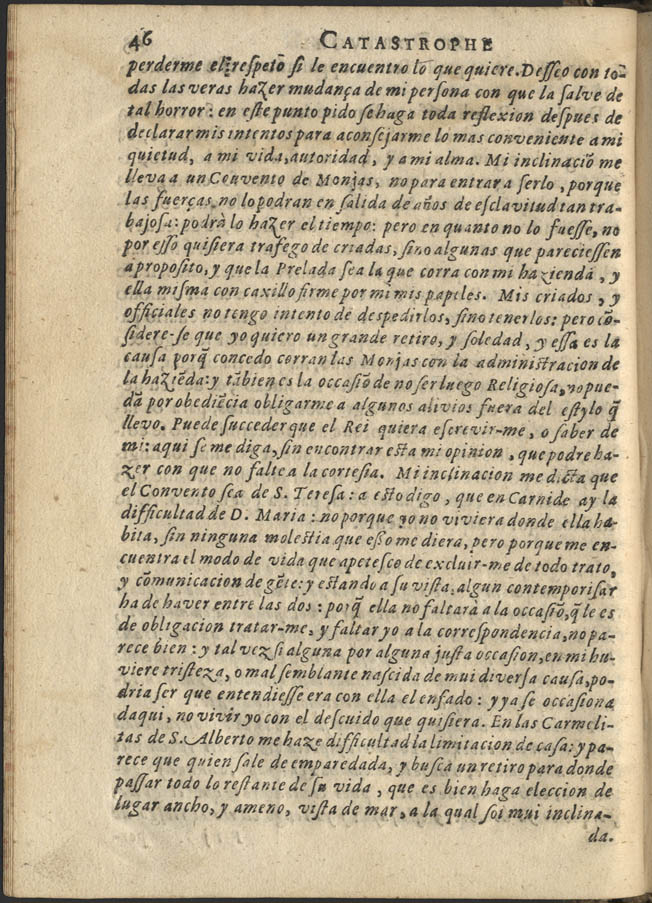 46 CATASTROPHE
perderme el respetō si le encuentro lo que quiere. Desseo con to-
das las veras hazer mudança de mi persona con que la salve de
tal horror: en este punto pido se haga toda reflexion despues de
declarar mis intentos para aconsejarme lo mas conveniente a mi
quietud, a mi vida, autoridad, y a mi alma. Mi inclinaciõ me
lleva a un Convento de Monjas, no para entrar a serlo, porque
las fuerças no lo podran en salida de años de esclavitud tan tra-
bajosa: podrà lo hazer el tiempo: pero en quanto no lo fuesse, no
por esso quisiera trafego de criadas, sino algunas que pareciessen
a proposito, y que la Prelada sea la que corra con mi hazienda, y
ella misma con caxillo firme por mi mis papeles. Mis criados, y
officiales no tengo intento de despedirlos, sino tenerlos: pero cõ-
sidere-se que yo quiero un grande retiro, y soledad, y essa es la
causa porq̃ concedo corran las Monjas con la administracion de
la haziẽda: y tãbien es la occasiõ de no ser luego Religiosa, no pue-
dã por obediẽcia obligarme a algunos alivios fuera del estylo q̃
llevo. Puede succeder que el Rei quiera escrevir-me, o saber de
mi: aqui se me diga, sin encontrar esta mi opinion, que podre ha-
zer con que no falte a la cortesia. Mi inclinacion me dicta que
el Convento sea de S. Teresa: a esto digo, que en Carnide ay la
difficultad de D. Maria: no porque yo no viviera donde ella ha-
bita, sin ninguna molestia que esso me diera, pero porque me en-
cuentra el modo de vida que apetesco de excluir-me de todo trato,
y cõmunicacion de gẽte: y estando a su vista, algun contemporisar
ha de haver entre las dos: porq̃ ella no faltarà a la occasiõ, q̃ le es
de obligacion tratar-me, y faltar yo a la correspondencia, no pa-
rece bien: y tal vez si alguna por alguna justa occasion, en mi hu-
viere tristeza, o mal semblante nascida de mui diversa causa, po-
dria ser que entendiesse era con ella el enfado: y ya se occasiona
daqui, no vivir yo con el descuido que quisiera. En las Carmeli-
tas de S. Alberto me haze difficultad la limitacion de casa: y pa-
rece que quien sale de emparedada, y busca un retiro para donde
passar todo lo restante de su vida, que es bien haga eleccion de
lugar ancho, y ameno, vista de mar, a la qual soi mui inclina-
da.